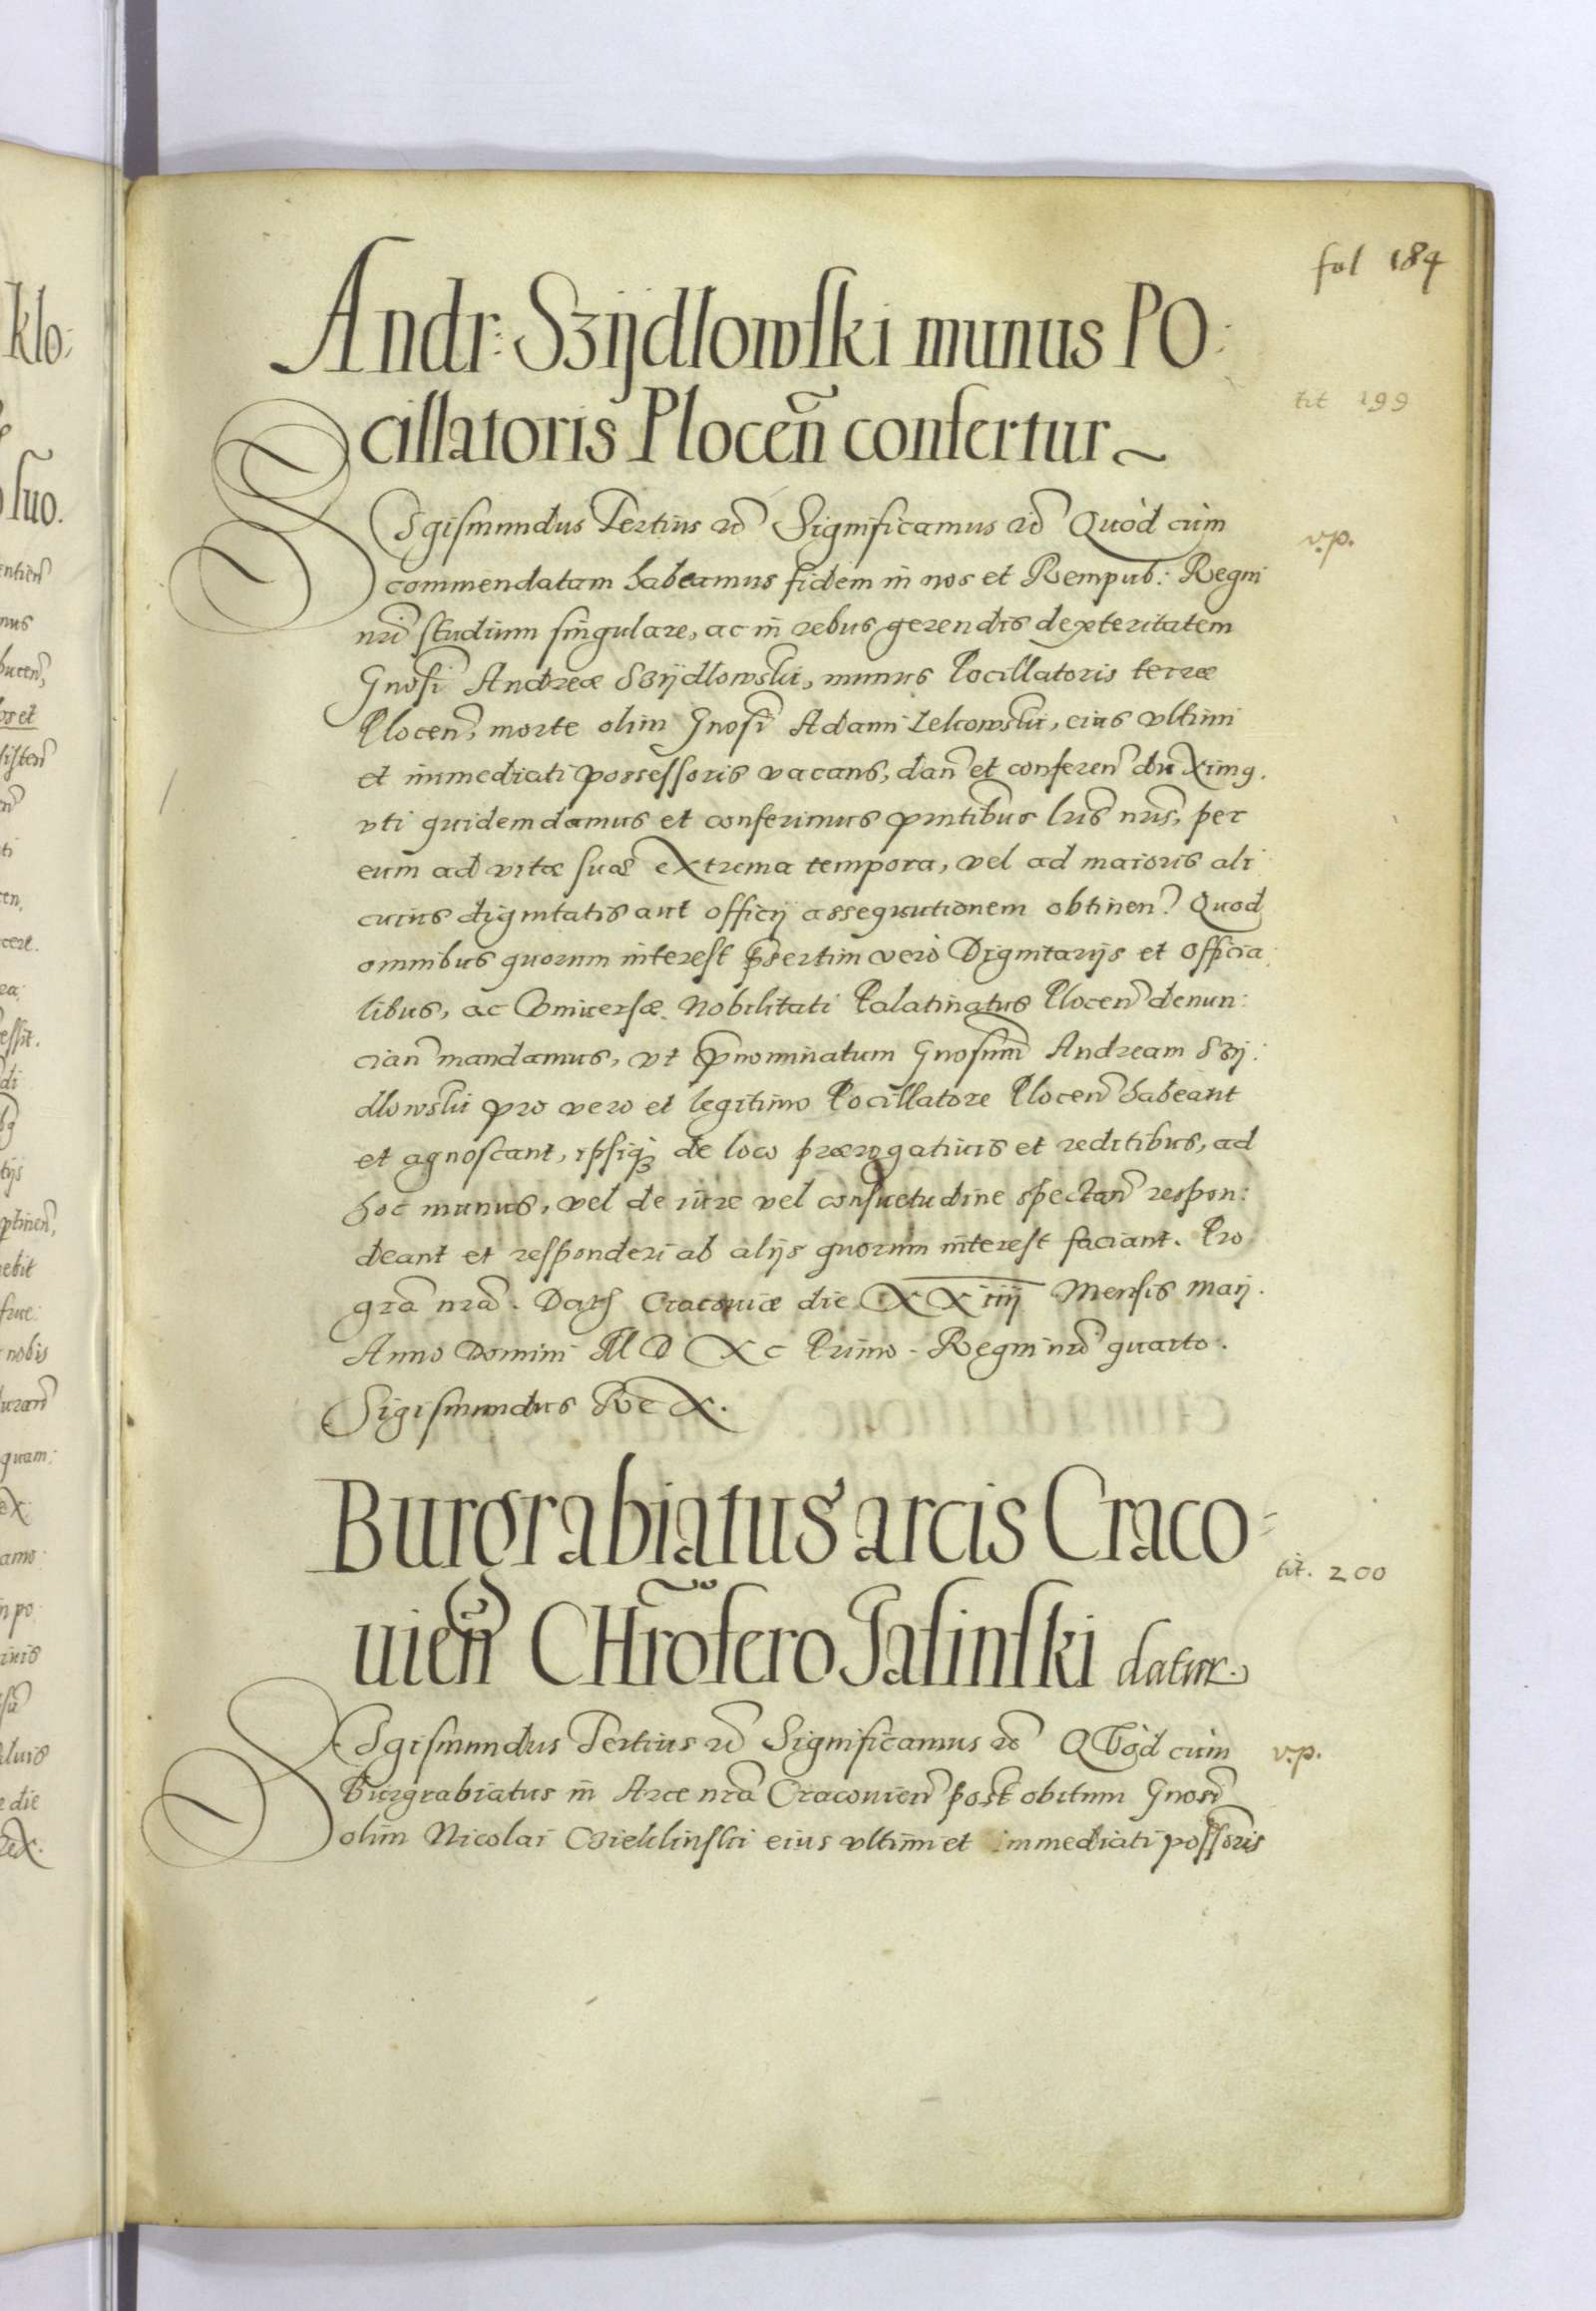 fol 184
Andr: Szijdlowski munus PO:
tit 199
cillatoris Plocen̄ confertur
Sigismundus Tertius etc Significamus etc Quòd cùm
v.p.
commendatam habeamus fidem in nos et Rempub: Regni
nri studium singulare, ac in rebus gerendis dexteritatem
Gnosi Andreæ Szijdlowski, munus Pocillatoris terræ
Plocen, morte olim Gnosi Adami Lelowski, eius vltimi
et immediati possessoris vacans, dan et conferen duximq.
vti quidem damus et conferimus pntibus lris nris, per
eum ad vitæ suæ extrema tempora, vel ad maioris ali
cuius dignitatis aut officij assequutionem obtinen? Quod
omnibus quorum interest psertim verò Dignitarijs et officia:
libus, ac Vniuersæ Nobilitati Palatinatus Plocen denun:
cian mandamus, vt pnominatum Gnosum Andream Szij:
dlowski pro vero et legitimo Pocillatore Plocen habeant
et agnoscant, ipsiq; de loco prærogatiuis et reditibus, ad
hoc munus, vel de iure vel consuetudine spectan respon:
deant et responderi ab alijs quorum interest faciant. Pro
gra nra. Dat Cracouiæ die XXiiij Mensis Maij.
Anno Domini M D Xc Primo - Regni nri quarto.
Sigismundus Rex.
Burgrabiatus arcis Craco-
tit. 200
uien̄ CHrōfero Jasinski datur.
Sigismundus Tertius etc Significamus etc QVòd cùm
v.p.
Burgrabiatus in Arce nra Cracouien post obitum Gnosi
olim Nicolai Czieklinski eius vltimi et immediati possoris